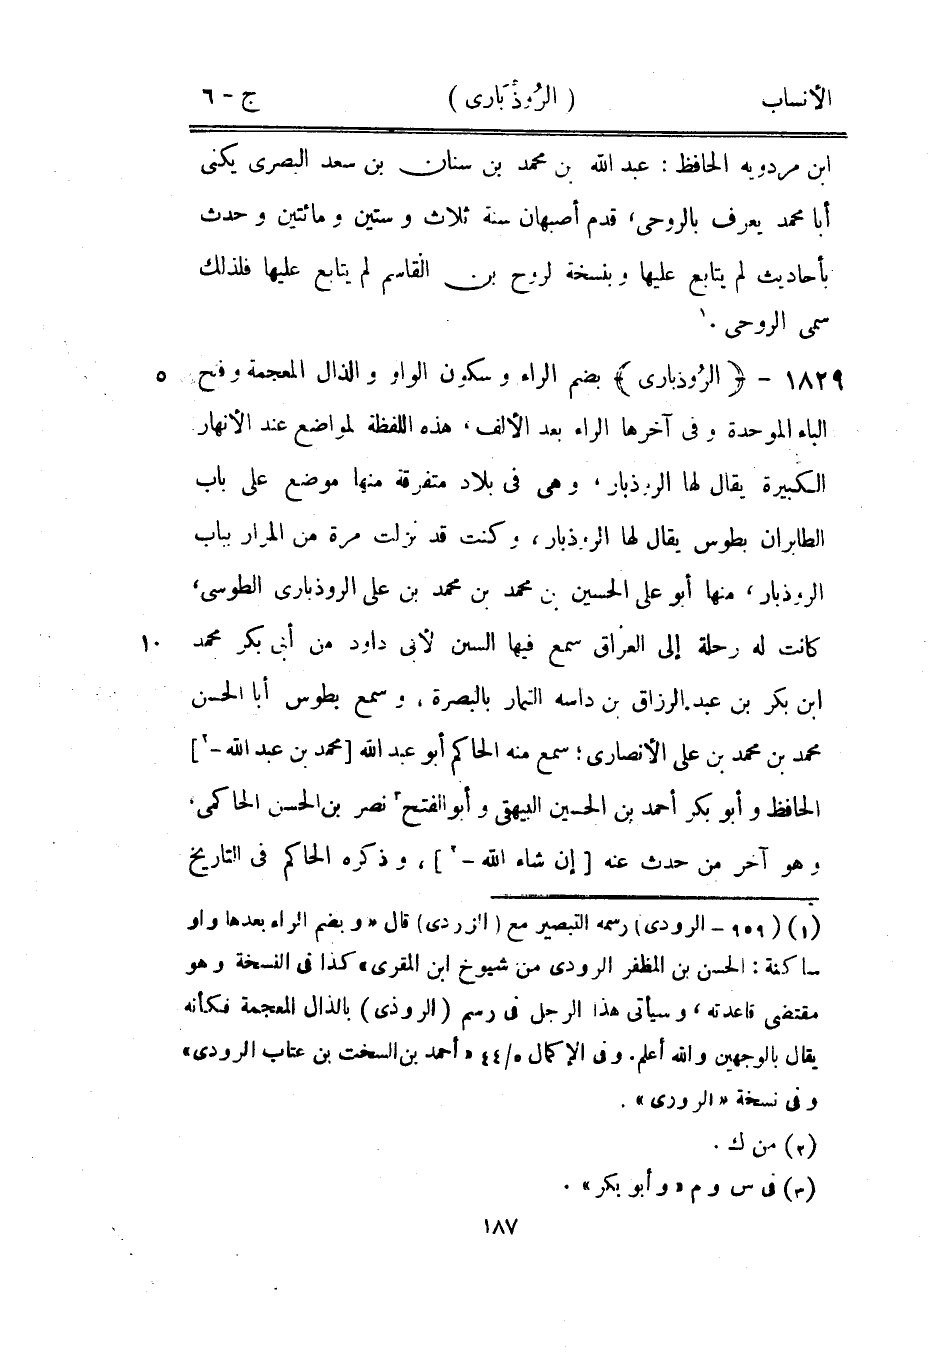 الأنساب (الرُوذْبَارى) ج - ٦
ابن مردويه الحافظ : عبد الله بن محمد بن سنان بن سعد البصرى يكنى
أبا محمد يعرف بالروحى، قدم أصبهان سنة ثلاث و ستين و مائتين و حدث
بأحاديث لم يتابع عليها و بنسخة لروح بن القاسم لم يتابع عليها فلذلك
سمى الروحى ١.
١٨٢٩ - ﴿ الرُوذبارى ﴾ بضم الراء و سكون الواو و الذال المعجمة و فتح ٥
الباء الموحدة و فى آخرها الراء بعد الألف، هذه اللفظة لمواضع عند الأنهار
الكبيرة يقال لها الروذبار، و هى فى بلاد متفرقة منها موضع على باب
الطابران بطوس يقال لها الروذبار، و كنت قد نزلت مرة من المرار بباب
الروذبار، منها أبو على الحسين بن محمد بن محمد بن على الروذبارى الطوسى،
كانت له رحلة إلى العراق سمع فيها السنن لأبى داود من أبى بكر محمد ١٠
ابن بكر بن عبد الرزاق بن داسه التمار بالبصرة، و سمع بطوس أبا الحسن
محمد بن محمد بن على الأنصارى؛ سمع منه الحاكم أبو عبد الله [محمد بن عبد الله -٢]
الحافظ و أبو بكر أحمد بن الحسين البيهقى و أبو الفتح٣ نصر بن الحسن الحاكمى،
و هو آخر من حدث عنه [ إن شاء الله -٢ ]، و ذكره الحاكم فى التاريخ
(١) (٩٥٩ - الرودى) رسمه التبصير مع (الزردى) قال « و بضم الراء بعدها واو
ساكنة : الحسن بن المظفر الرودى من شيوخ ابن المقرى» كذا فى النسخة و هو
مقتضى قاعدته، و سيأتى هذا الرجل فى رسم (الروذى) بالذال المعجمة فكأنه
يقال بالوجهين والله أعلم. و فى الإكمال ٤٤/٥ « أحمد بن السخت بن عتاب الرودى»
و فى نسخة « الرورى» .
(٢) من ك .
(٣) فى س و م « و أبو بكر » .
١٨٧